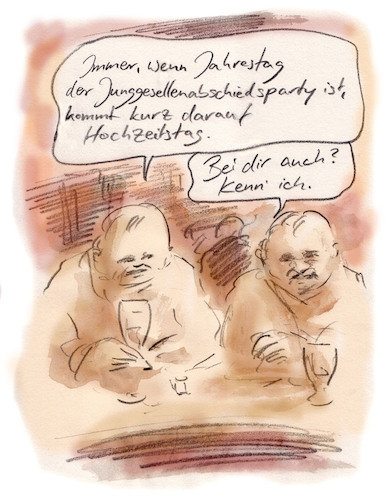 Immer, wenn Jahrestag
der Junggesellenabschiedsparty ist,
kommt kurz darauf
Hochzeitstag.
Bei dir auch?
Kenn' ich.